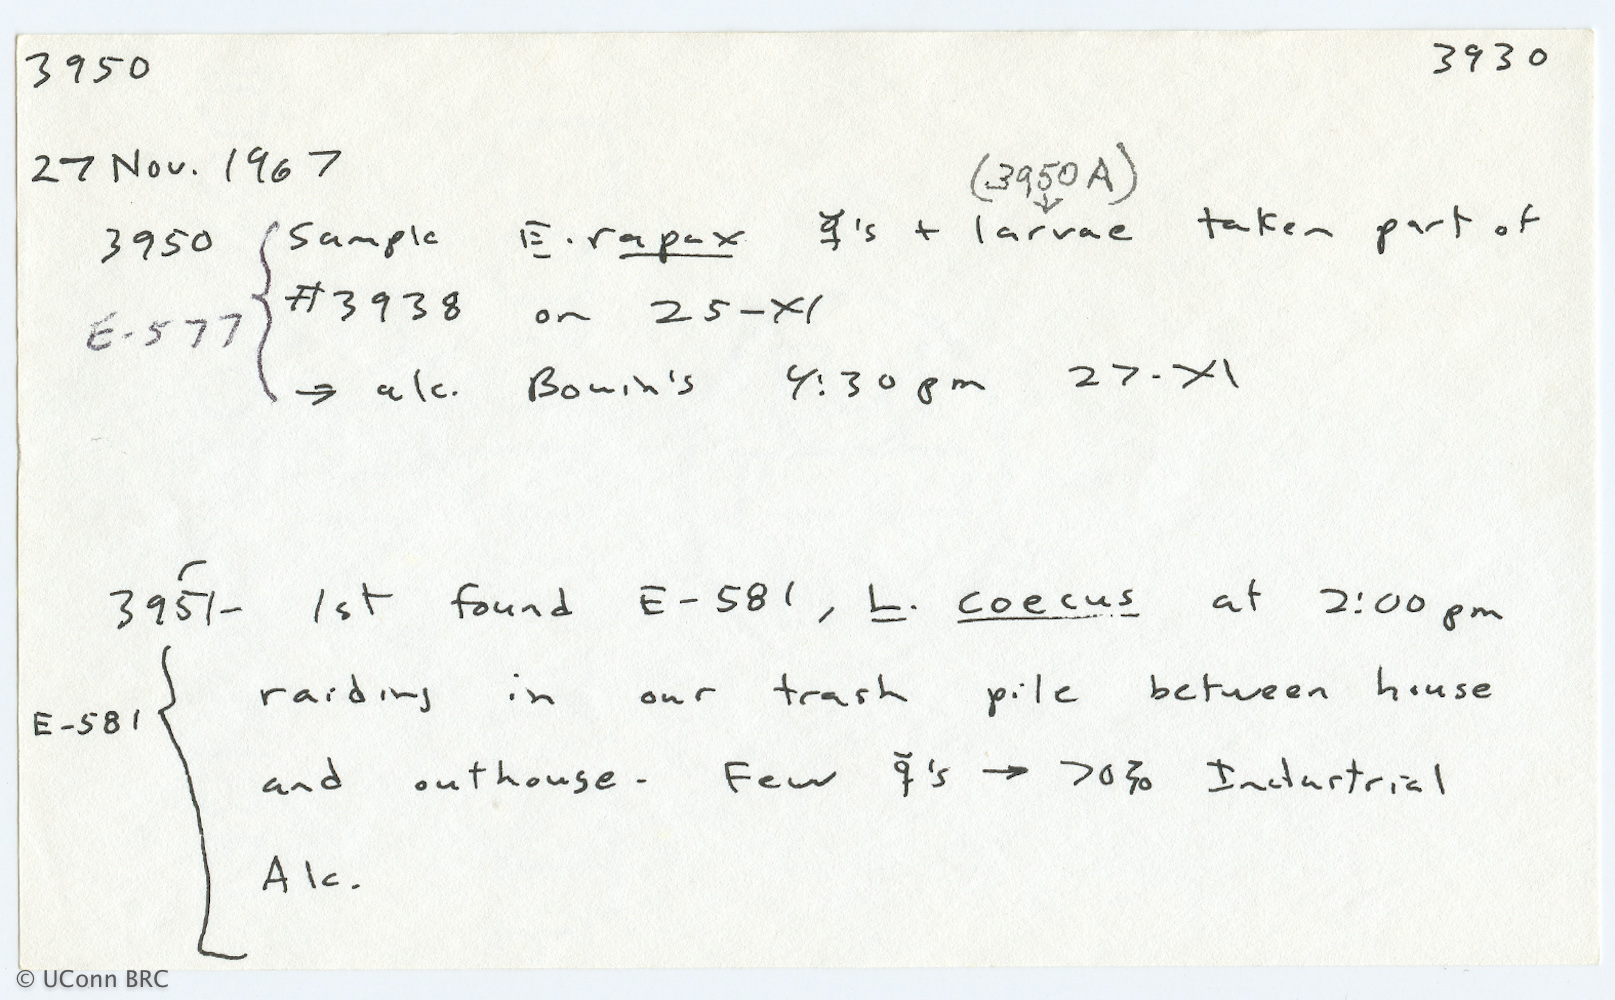 3950 3930
27 Nov. 1967
(3950A)
3950 Sample E. rapax ☿'s + larvae taken part of
E-577 #3938 on 25-XI
→ alc. Bouin's 4:30 pm 27-XI
3951- 1st found E-581, L. coecus at 2:00 pm
E-581 raiding in our trash pile between house
and outhouse. Few ☿'s → 70% Industrial
Alc.
© UConn BRC